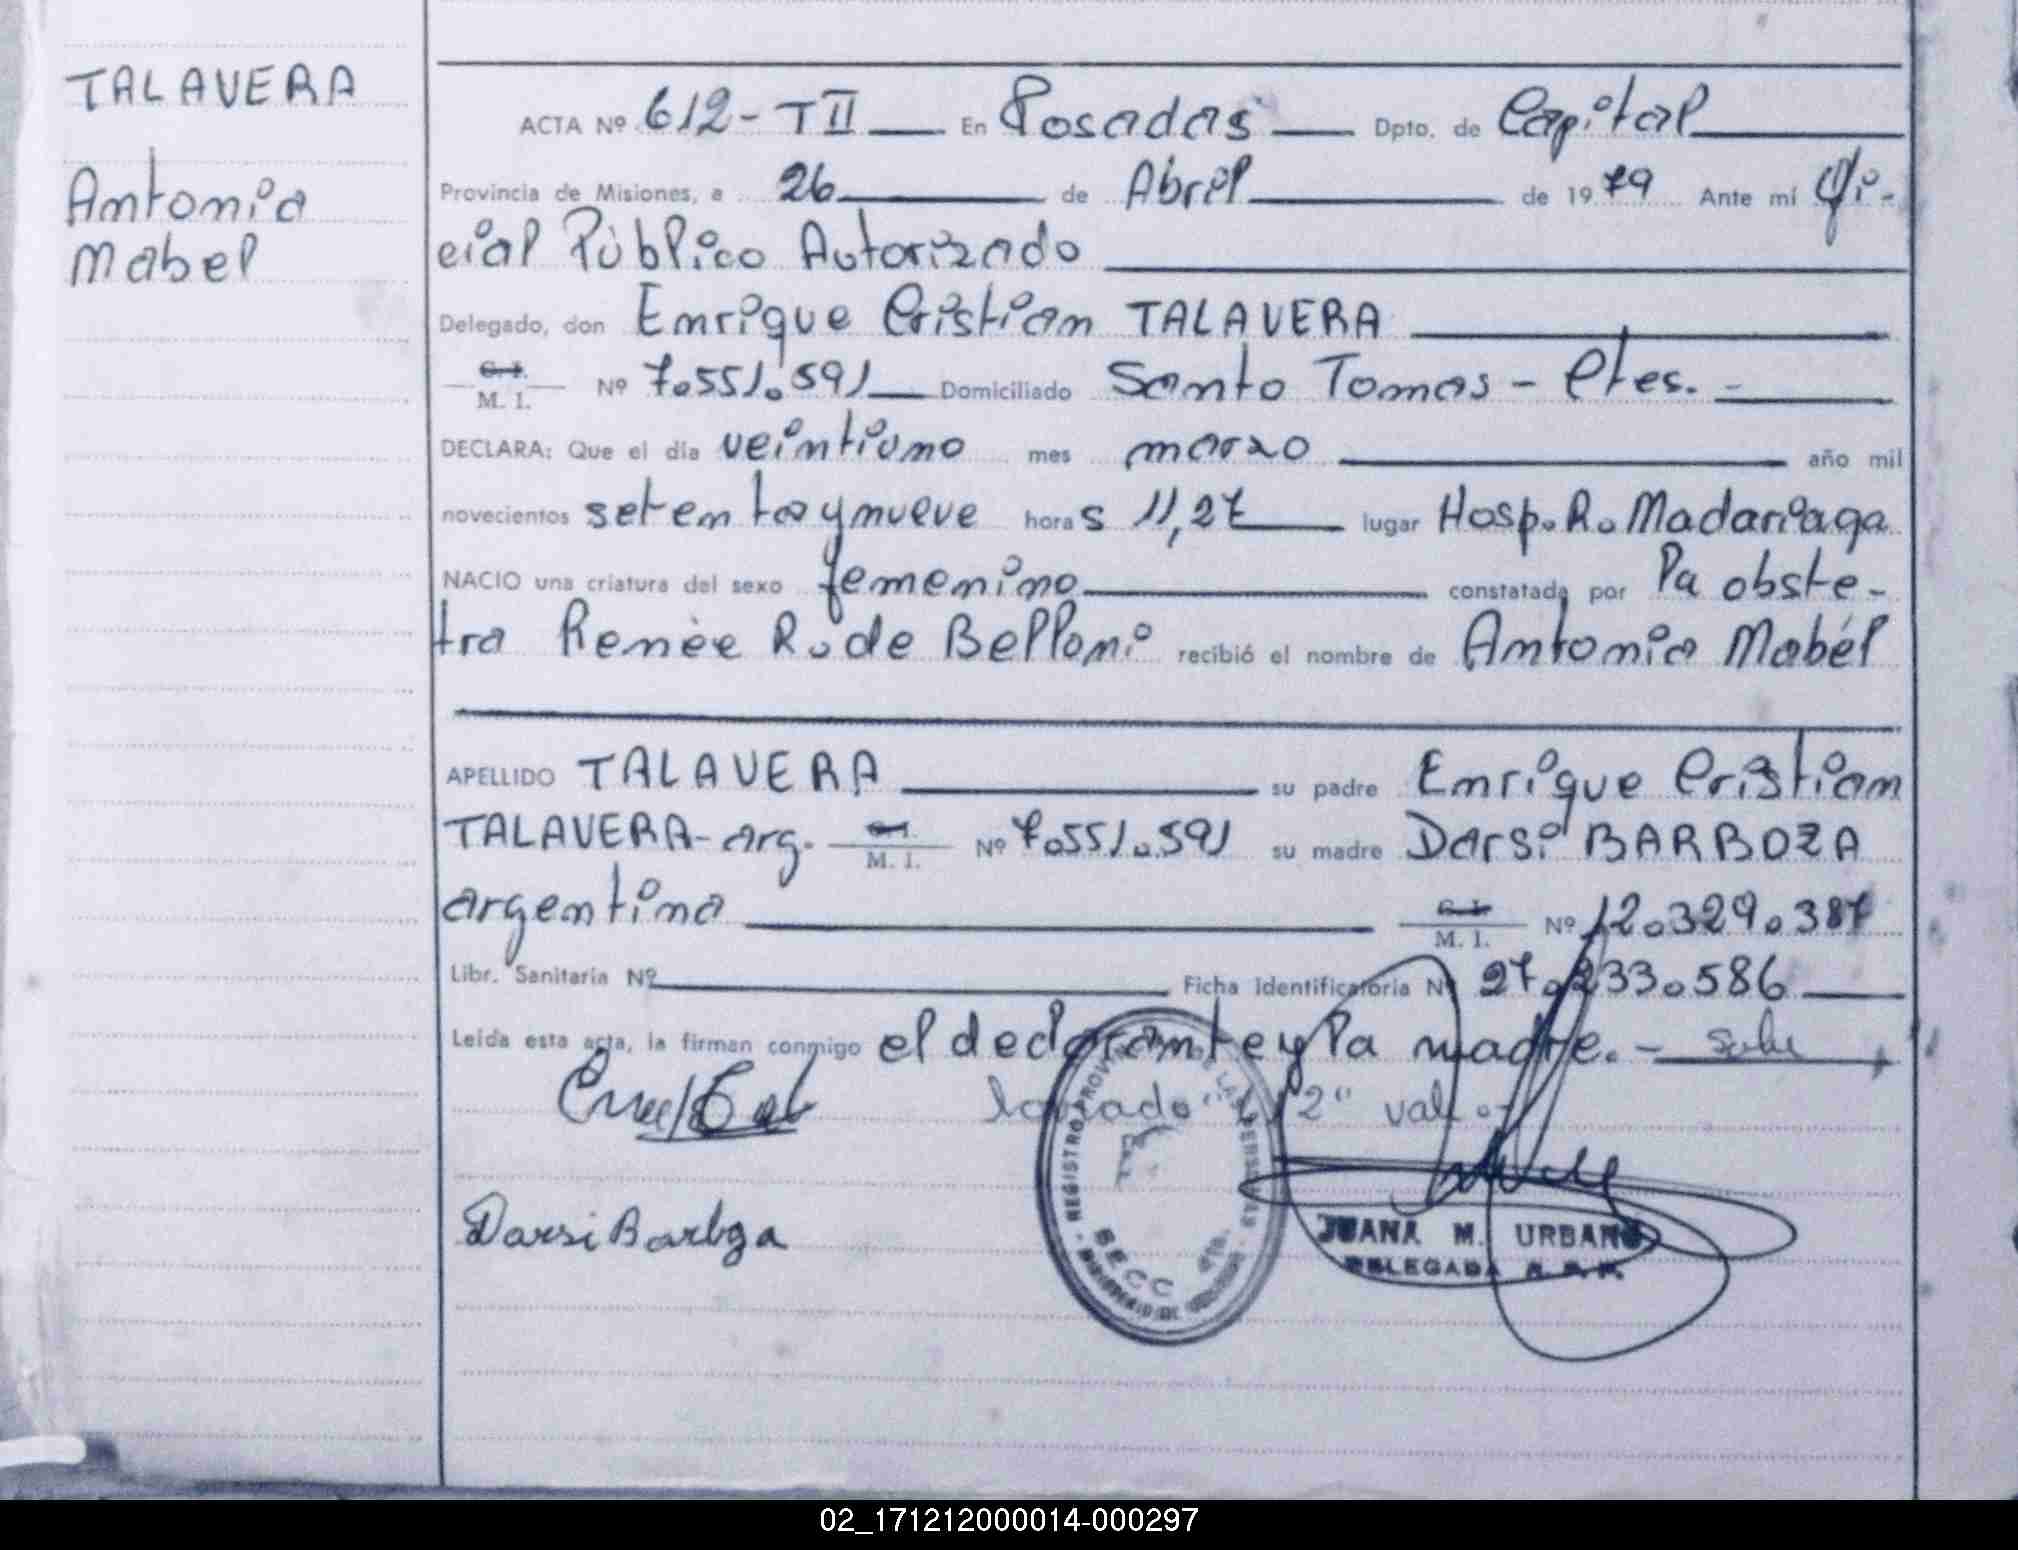 TALAVERA
Antonia
Mabel
ACTA Nº 612-TII En Posadas Dpto. de Capital
Provincia de Misiones, a 26 de Abril de 1979 Ante mí Ofi-
cial Público Autorizado
Delegado, don Enrique Cristian TALAVERA
C. I. M. I. Nº 7.551.591 Domiciliado Santo Tomas - Ctes. -
DECLARA: Que el día veintiuno mes marzo año mil
novecientos setenta y nueve horas 11,27 lugar Hosp. R. Madariaga
NACIO una criatura del sexo femenino constatada por la obste-
tra Renèe R. de Belloni recibió el nombre de Antonia Mabél
APELLIDO TALAVERA su padre Enrique Cristian
TALAVERA - arg. C. I. M. I. Nº 7.551.591 su madre Darsi BARBOZA
argentina C. I. M. I. Nº 12.329.387
Libr. Sanitaria Nº Ficha Identificatoria Nº 27.233.586
Leída esta acta, la firman conmigo el declarante y la madre. - sobre
"2" vale -
Darsi Barboza
REGISTRO PROVINCIAL DE LAS PERSONAS
SECC
JUANA M. URBANO
DELEGADA
02_171212000014-000297